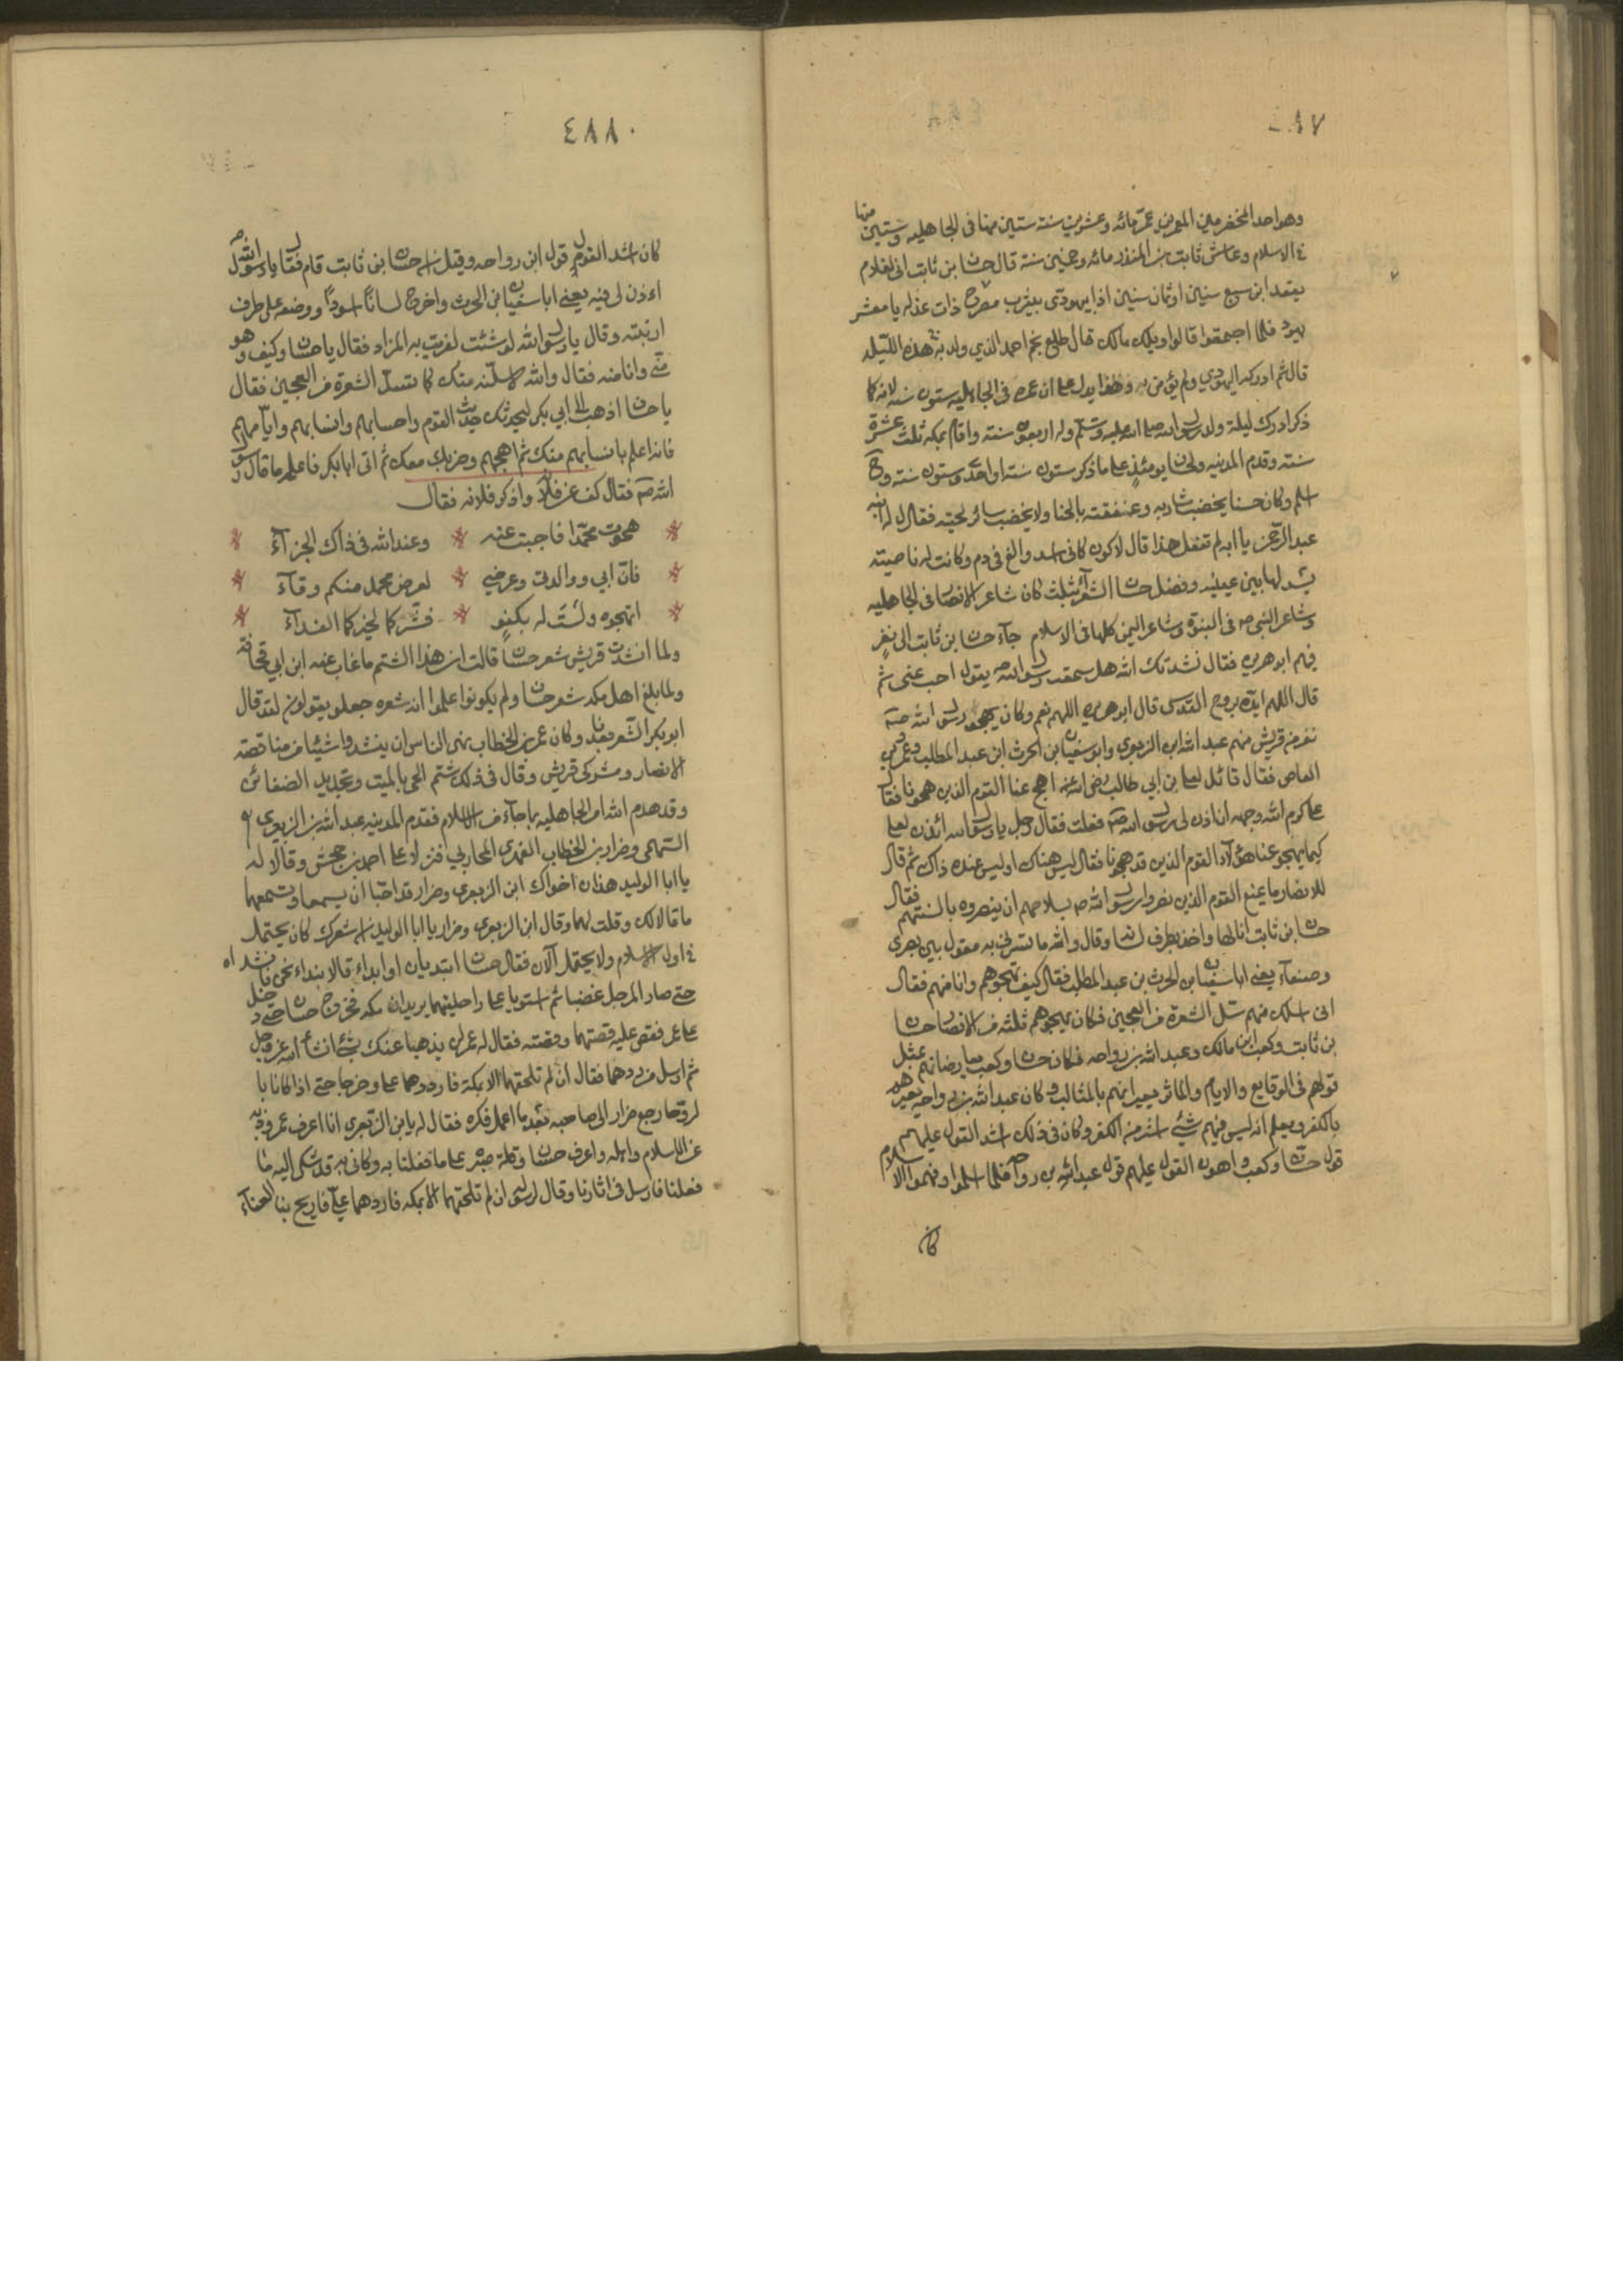 ٤٨٧
وهو احد المخضرمين المعمرين عمّر مائه وعشرين سنته ستين منها فى الجاهليه وستين منها
فى الاسلام وعاش ثابت بن المنذر مائه وخمسين سنة قال حسان بن ثابت انى لغلام
يفعه ابن سبع سنين او ثمان سنين اذا يهودى بيثرب يصرخ ذات غداه يا معشر
يهود فلما اجتمعوا قالوا ويلك مالك قال طلع نجم احمد الذي ولد به هذه الليله
قال ثم ادركه اليهودي ولم يؤمن به وهذا يدل على ان عمره فى الجاهليه ستون سنه لانه كما
ذكر ادرك ليلة ولد رسول الله صلى الله عليه وسلم وله اربعون سنته واقام بمكه ثلث عشرة
سنته وقدم المدينه ولحسان يومئذٍ على ما ذكر ستون سنته او احدى وستون سنته وح
اسلم وكان حسان يخضب شاربه وعنفقته بالحنا ولا يخضب سائر لحيته فقال له ابنه
عبد الرّحمن يا ابه لم تفعل هذا قال لاكون كانى اسد والغ فى دم وكانت له ناصيته
يسدلها بين عينيه وفضل حسان الشعرآء بثلث كان شاعر الانصار فى الجاهليه
وشاعر النبى صه فى النبوّة وشاعر اليمن كلها فى الاسلام جآء حسان بن ثابت الى نفرٍ
فيهم ابو هريره فقال نشدتك الله هل سمعت رسول الله صه يقول اجب عنى ثم
قال اللهم ايّده بروح القدس قال ابو هريره اللهم نعم وكان يهجو رسول الله صه
نفر من قريش منهم عبد الله ابن الزبعرى وابو سفيان ابن الحرث ابن عبد المطلب وعمرو بن
العاص فقال قائل لعلى بن ابي طالب رضى الله عنه اهج عنا القوم الذين هجونا فقال
على كرم الله وجهه ان اذن لى رسول الله صه فعلت فقال رجل يا رسول الله ائذن لعلى
كيما يهجو عنا هؤلآء القوم الذين قد هجونا فقال ليس هناك او ليس عنده ذاك ثم قال
للانصار ما يمنع القوم الذين نصروا رسول الله صه بسلاحهم ان ينصروه بالسنتهم فقال
حسان ابن ثابت انا لها واخذ بطرف لسانه وقال والله ما يسرني به مقول بين بصرى
وصنعآء يعنى ابا سفيان بن الحرث بن عبد المطلب فقال كيف تهجوهم وانا منهم فقال
انى اسلك منهم سل الشعرة من العجين فكان يهجوهم ثلثه من الانصار حسان
بن ثابت وكعب ابن مالك وعبد الله بن رواحه فكان حسان وكعب يعارضانهم بمثل
قولهم فى الوقايع والايام والمآثر ويعيرانهم بالمثالب وكان عبد الله بن رواحه يعيرهم
بالكفر ويعلم انه ليس فيهم شيئ اشر من الكفر وكان فى ذلك اشد القول عليهم
قول حسان وكعب واهون القول عليهم قول عبد الله بن رواحه فلما اسلموا وفهموا الاسلام
كان
٤٨٨
كان اشد القول قول ابن رواحه وقيل ان حسان بن ثابت قام فقال يا رسول الله
ائذن لى فيه يعنى ابا سفيان ابن الحرث واخرج لسانًا اسودًا ووضعه على طرف
ارنبته وقال يا رسول الله لو شئت لفريت به المزاد فقال يا حسان وكيف وهو
منّى وانا منه فقال والله لاسلّنه منك كما تسلّ الشعرة من العجين فقال
يا حسان اذهب الى ابي بكر ليحدثك حديث القوم واحسابهم وانسابهم وايّامهم
فانه اعلم بانسابهم منك ثم اهجهم وجبريل معك ثم اتى ابا بكر فاعلمه ما قال رسول
الله صه فقال كف عن فلانه واذكر فلانه فقال
هجوت محمّدا فاجبت عنه وعند الله فى ذاك الجزآء
فانّ ابي ووالدتى وعرضي لعرض محمد منكم وقآء
اتهجوه ولست له بكفوٍ فشرّكما لخيركما الفدآء
ولما انشدت قريش شعر حسان قالت ان هذا الشتم ما غاب عنه ابن ابي قحافه
ولما بلغ اهل مكه شعر حسان ولم يكونوا علموا انه شعره جعلو يقولون لقد قال
ابو بكر الشعر بعدنا وكان عمر بن الخطاب نهى الناس ان ينشدوا شيئا من مناقضة
الانصار ومشركى قريش وقال فى ذلك شتم الحى بالميت وتجديد الضغائن
وقد هدم الله امر الجاهليه بما جآء من الاسلام فقدم المدينه عبد الله بن الزبعرى
السهمى وضرار بن الخطاب الفهرى المحاربي فنزلا على احمد بن جحش وقالا له
يا ابا الوليد هذان اخواك ابن الزبعرى وضرار قد احبّا ان يسمعا وتسمعهما
ما قالا لك وقلت لهما وقال ابن الزبعرى وضرار يا ابا الوليد ان شعرك كان يحتمل
فى اول الاسلام ولا يحتمل الآن فقال حسان ابتديان او ابداء قالا بنداء نحن فانشداه
حتى صار المرجل غضبا ثم استويا على راحلتيهما يريدان مكه فخرج حسان حتى دخل
على عمر فقص عليه قصتهما وقصته فقال له عمر لن يذهبا عنك بشئ انشآء الله عز وجل
ثم ارسل من يردهما فقال ان لم تلحقهما الا بمكه فارددهما على وخرجا حتى اذا كانا با
لروحا رجع ضرار الى صاحبه بعد ما اعمل فكره فقال له يا بن الزبعرى انا اعرف عمر وذبه
عن الاسلام واهله واعرف حسان وقلة صبره على ما فعلنا به وكانى به قد شكى اليه ما
فعلنا فارسل فى اثارنا وقال لرسوله ان لم تلحقهما الا بمكه فارددهما عليّ فاربح بنا العنآء